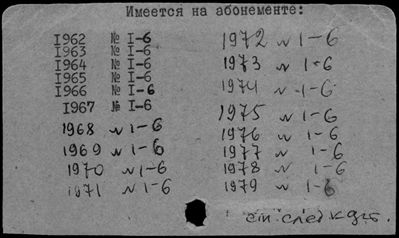 Имеется на абонементе:
1962 № 1-6
1963 № 1-6
1964 № 1-6
1965 № 1-6
1966 № 1-6
1967 № 1-6
1968 N 1-6
1969 N 1-6
1970 N 1-6
1971 N 1-6
1972 N 1-6
1973 N 1-6
1974 N 1-6
1975 N 1-6
1976 N 1-6
1977 N 1-6
1978 N 1-6
1979 N 1-6
см. след к-дт.